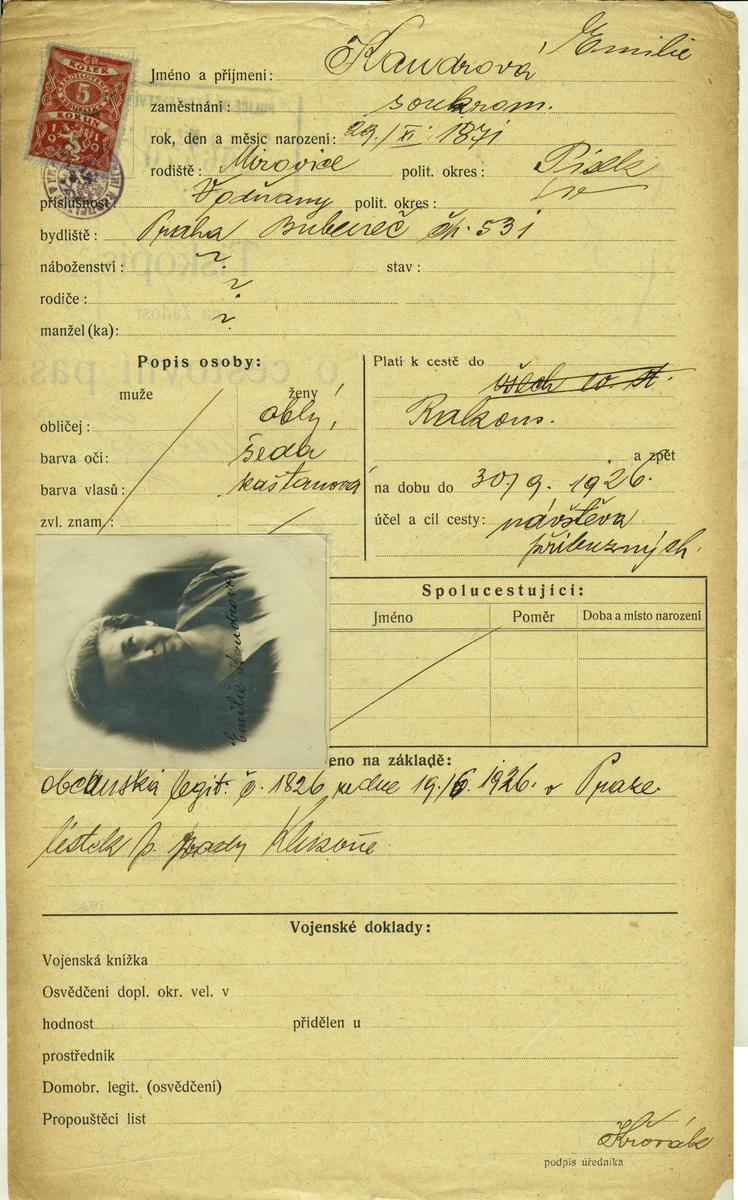 KOLEK
5
KORUN
Jméno a příjmení: Kaudrová Emilie
zaměstnání: soukrom.
rok, den a měsíc narození: 29./XI. 1871
rodiště: Mirovice polit. okres: Písek
příslušnost: Vodňany polit. okres:
bydliště: Praha Bubeneč čp. 531
náboženství: stav:
rodiče:
manžel (ka):
Popis osoby:
muže ženy
obličej: oblý
barva očí: šedá
barva vlasů: kaštanová
zvl. znam.:
Platí k cestě do
všech
Rakous.
a zpět
na dobu do 30./9. 1926.
účel a cíl cesty: návštěva
příbuzných.
Emilie Kaudrová
Spolucestující:
Jméno Poměr Doba a místo narození
eno na základě:
občanská legit. č. 1826 ze dne 19./6. 1926. v Praze
lístek p. rady
Vojenské doklady:
Vojenská knížka
Osvědčení dopl. okr. vel. v
hodnost přidělen u
prostředník
Domobr. legit. (osvědčení)
Propouštěcí list
podpis úředníka